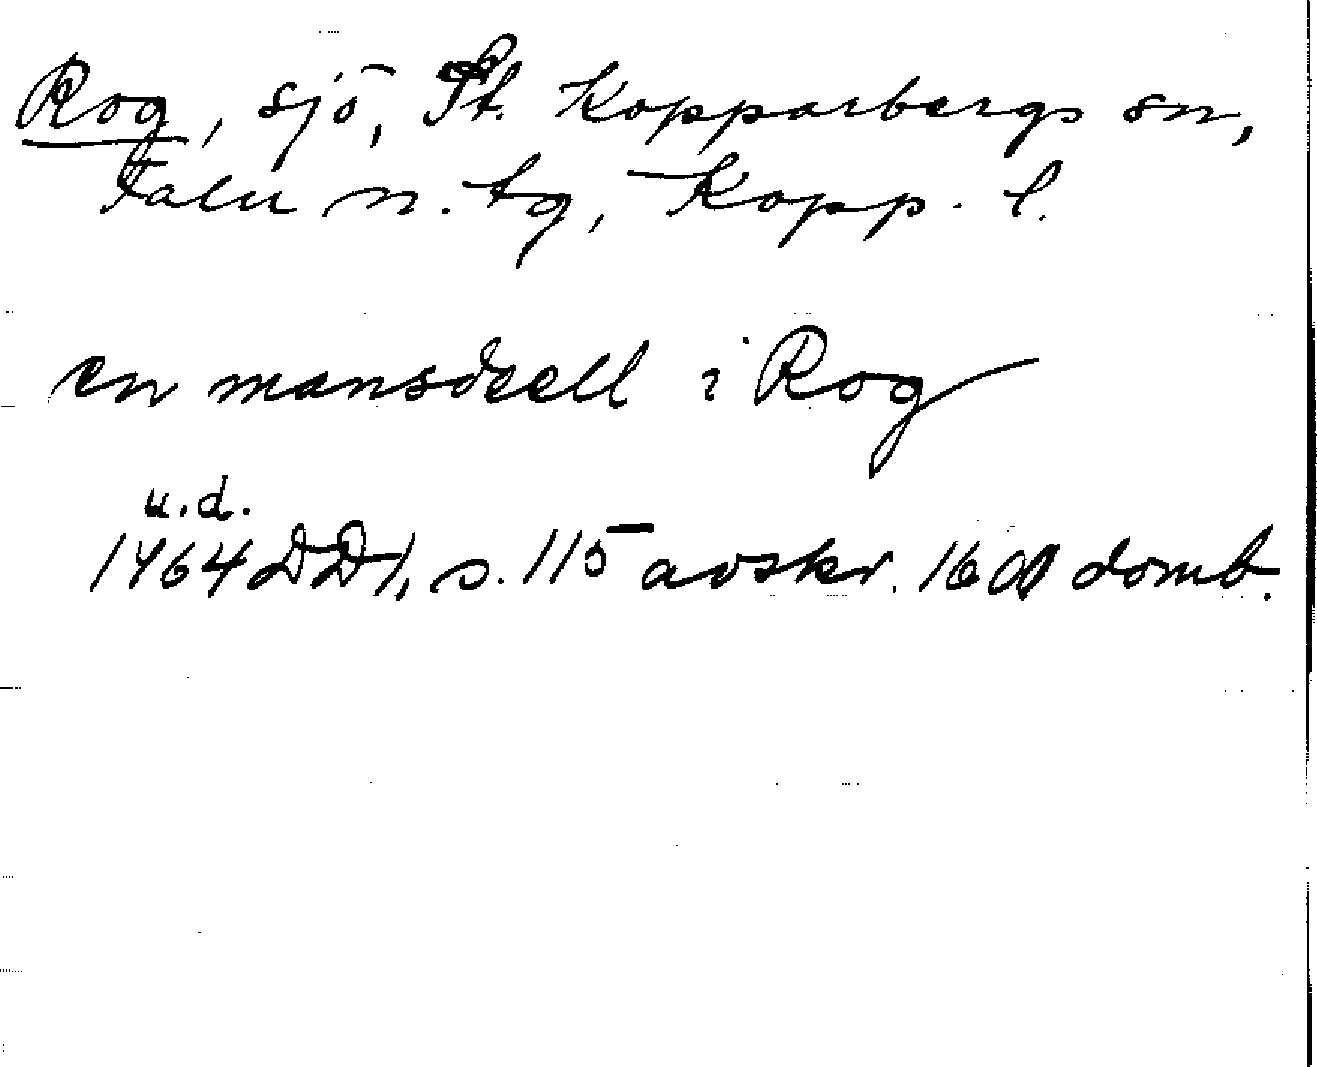 Rog, sjö, St. Kopparbergs sn,
Falu n. tg, Kopp. l.
en mansdeell i Rog
u.d.
1464 DD1, s. 115 avskr. 1600 domb.